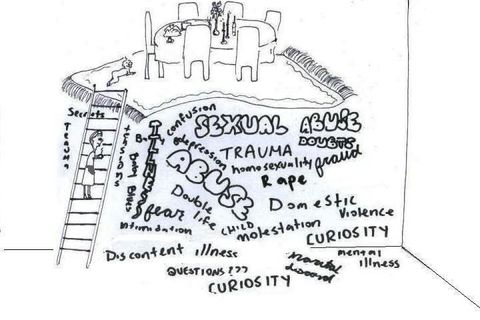 Secrets
TRAUMA
confusion
SEXUAL ABUSE
DOUBTS
depression
TRAUMA
homosexuality
fraud
ABUSE
Rape
Double life
Domestic Violence
fear
Intimidation
CHILD molestation
CURIOSITY
Discontent illness
mental illness
Marital discord
QUESTIONS???
CURIOSITY